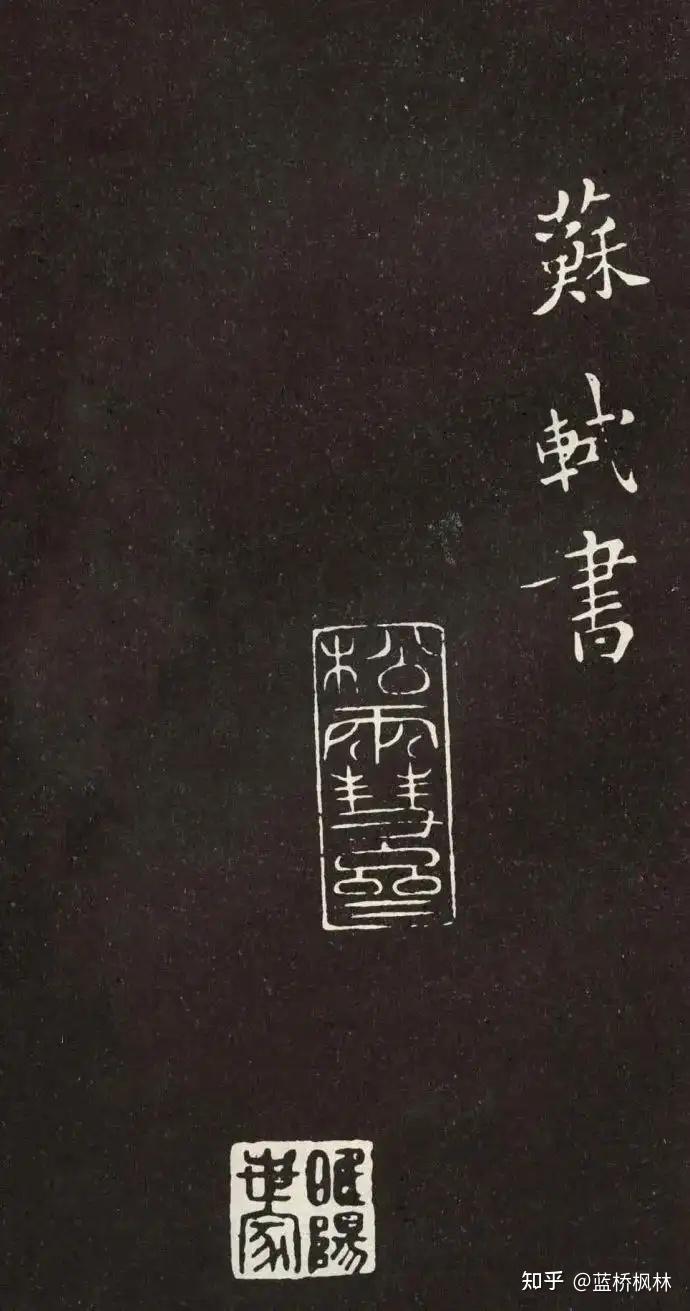 蘇軾書
松雪齋
睢陽世家
知乎 @蓝桥枫林